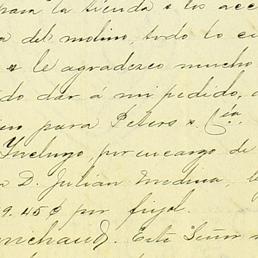 para la tienda & los acc
a del molino, todo lo cu
& le agradezco mucho
do dar á mi pedido,
para Peters & Cía
Incluyo, por encargo de
D. Julian Medina,
9.45¢ por frijol.
Este Señor